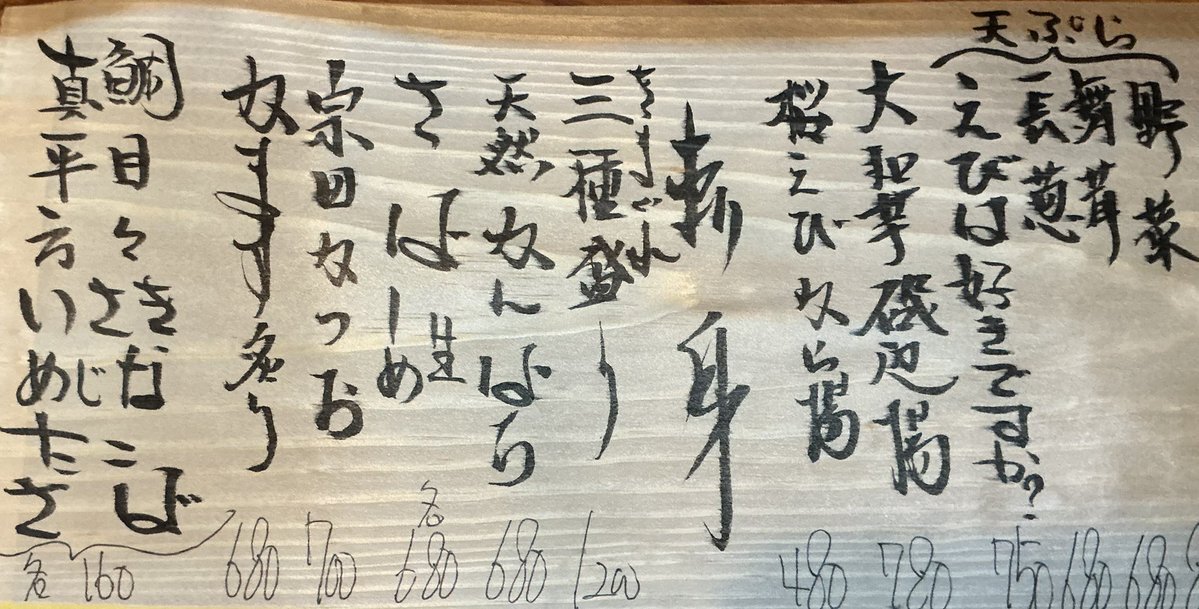 天ぷら
野菜
680
舞茸
680
長葱
えびは好きですか?
750
大和芋磯辺揚
780
桜えびかき揚
480
刺身
きまぐれ
三種盛り
1200
天然かんぱち
680
さば
生
しめ
各680
宗田かつお
700
かます炙り
680
真鯛
平目
方々
いさき
めじな
たこ
さば
各160